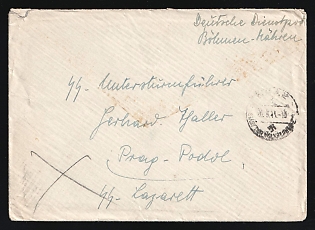 Deutsche Dienstpost
Böhmen-Mähren
SS-Untersturmführer
Gerhard Haller
Prag-Podol
SS-Lazarett